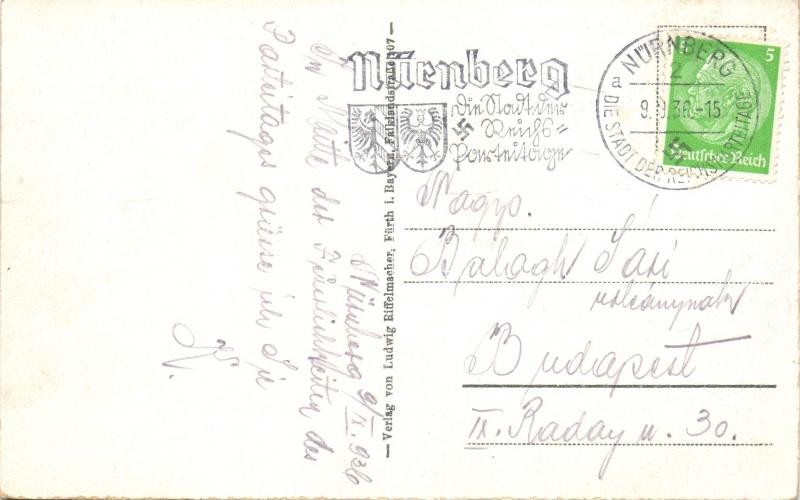 Nürnberg
Die Stadt der
Reichs=
Parteitage
NÜRNBERG
2
a
9.9.36.-15
DIE STADT DER REICHSPARTEITAGE
5
Deutsches Reich
Nürnberg 9/IX. 936
In Mitte der Feierlichkeiten des
Parteitages grüsse ich Sie
— Verlag von Ludwig Riffelmacher, Fürth i. Bayern, Falklandstraße 107 —
Nagys.
Balogh Sári
Budapest
IX. Raday u. 30.